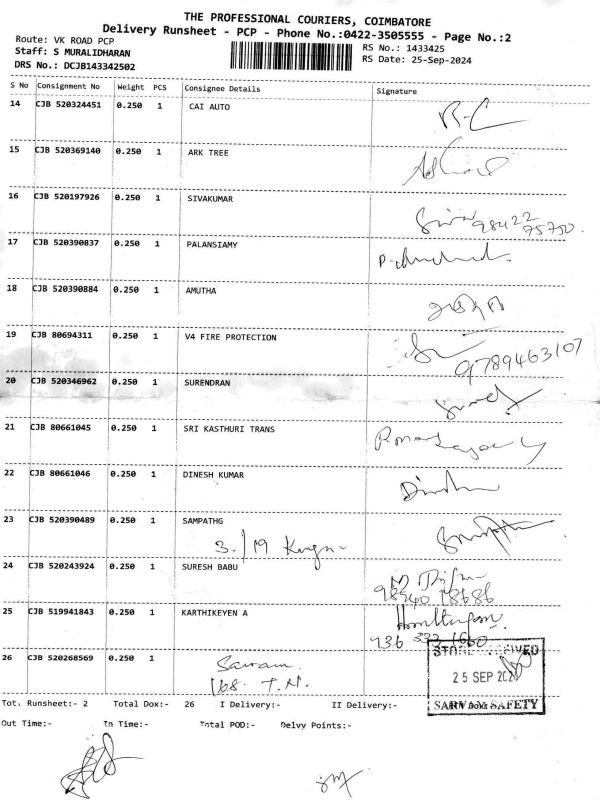 THE PROFESSIONAL COURIERS, COIMBATORE
Delivery Runsheet - PCP - Phone No.:0422-3505555 - Page No.:2
Route: VK ROAD PCP
RS No.: 1433425
Staff: S MURALIDHARAN
RS Date: 25-Sep-2024
DRS No.: DCJB143342502
S No Consignment No Weight PCS Consignee Details Signature
14 CJB 520324451 0.250 1 CAI AUTO
15 CJB 520369140 0.250 1 ARK TREE
16 CJB 520197926 0.250 1 SIVAKUMAR
Siva 98422
75750.
17 CJB 520390837 0.250 1 PALANSIAMY
18 CJB 520390884 0.250 1 AMUTHA
19 CJB 80694311 0.250 1 V4 FIRE PROTECTION
9789463107
20 CJB 520346962 0.250 1 SURENDRAN
21 CJB 80661045 0.250 1 SRI KASTHURI TRANS
22 CJB 80661046 0.250 1 DINESH KUMAR
23 CJB 520390489 0.250 1 SAMPATHG
3/19
24 CJB 520243924 0.250 1 SURESH BABU
98940 18686
25 CJB 519941843 0.250 1 KARTHIKEYEN A
936 333 1660
26 CJB 520268569 0.250 1 Sairam
168 T.N.
STORE RECEIVED
25 SEP 2024
SARVAM SAFETY
Tot. Runsheet:- 2 Total Dox:- 26 I Delivery:- II Delivery:-
Out Time:- In Time:- Total POD:- Delvy Points:-